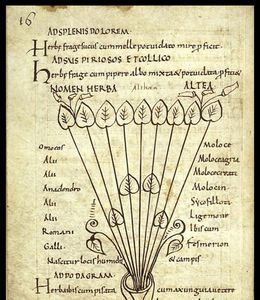 16
ADSPLENIS DOLOREM
Herbę fragę sucus cum melle potui dato mirę pficit.
ADSUSPIRIOSOS ET COLLICO
herbę fragę cum pipere albo mixta & potui data pfect
NOMEN HERBA Althaea ALTEA
Omoeos Moloce
Alii Moloceagria
Alii Molocerratica
Anadendro Molocin
Alii Sycofillon
Alii Ligemone
Romani Ibiscum
Galli Fesmerion
Nascitur locis humidis & campis
AD PODAGRAM
Herba ibiscum pistata cum axungia uetere